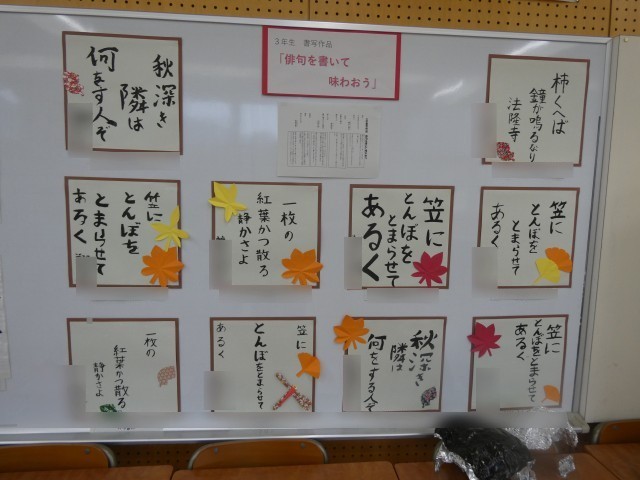 3年生 書写作品
「俳句を書いて
味わおう」
秋深き
隣は
何をす人ぞ
柿くへば
鐘が鳴るなり
法隆寺
笠に
とんぼを
とまらせて
あるく
一枚の
紅葉かつ散る
静かさよ
笠に
とんぼを
とまらせて
あるく
笠に
とんぼを
とまらせて
あるく
一枚の
紅葉かつ散る
静かさよ
笠に
とんぼをとまらせて
あるく
秋深き
隣は
何をする人ぞ
笠に
とんぼをとまらせて
あるく